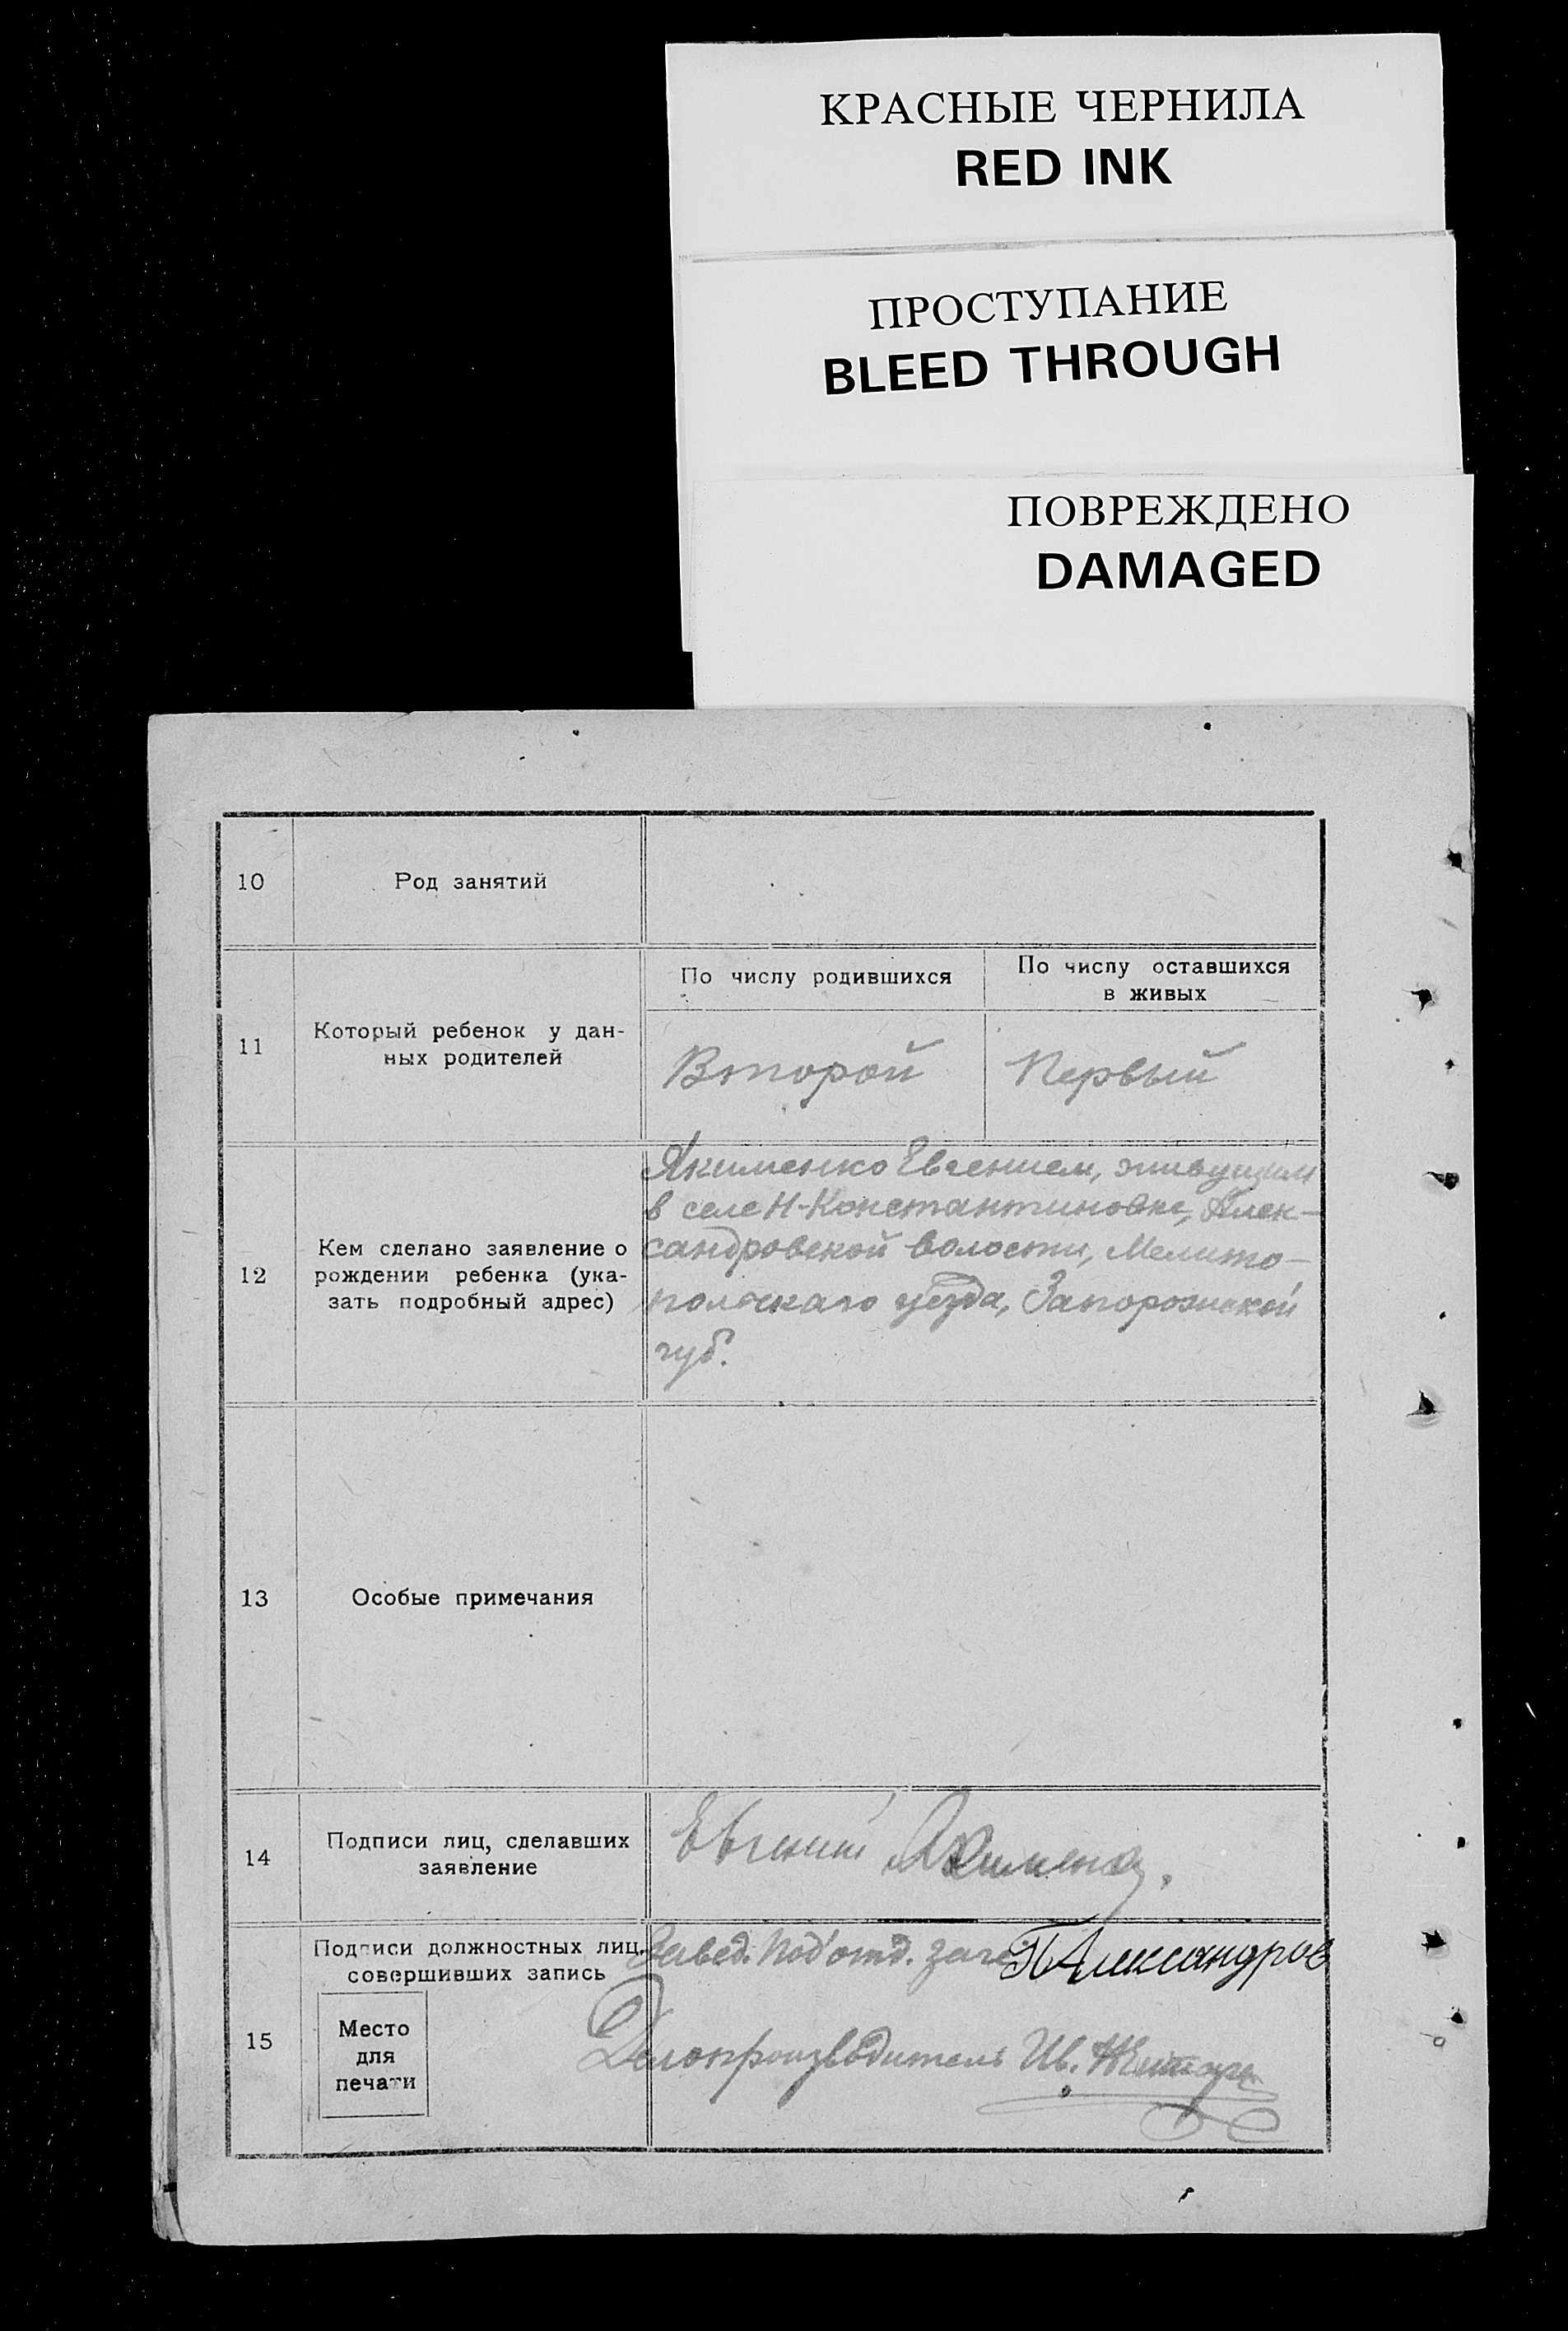 КРАСНЫЕ ЧЕРНИЛА
RED INK
ПРОСТУПАНИЕ
BLEED THROUGH
ПОВРЕЖДЕНО
DAMAGED
10 Род занятий
По числу родившихся
По числу оставшихся
в живых
11
Который ребенок у дан-
ных родителей
Второй Первый
12
Кем сделано заявление о
рождении ребенка (ука-
зать подробный адрес)
Якименко Евгением, живущим
в селе Н-Константиновке, Алек-
сандровской волости, Мелито-
польскаго уезда, Запорожской
губ.
13 Особые примечания
14
Подписи лиц, сделавших
заявление
Евгений Якименко.
15
Подписи должностных лиц,
совершивших запись
Место
для
печати
Завед. Под'отд. П Александров
Делопроизводитель Ив.